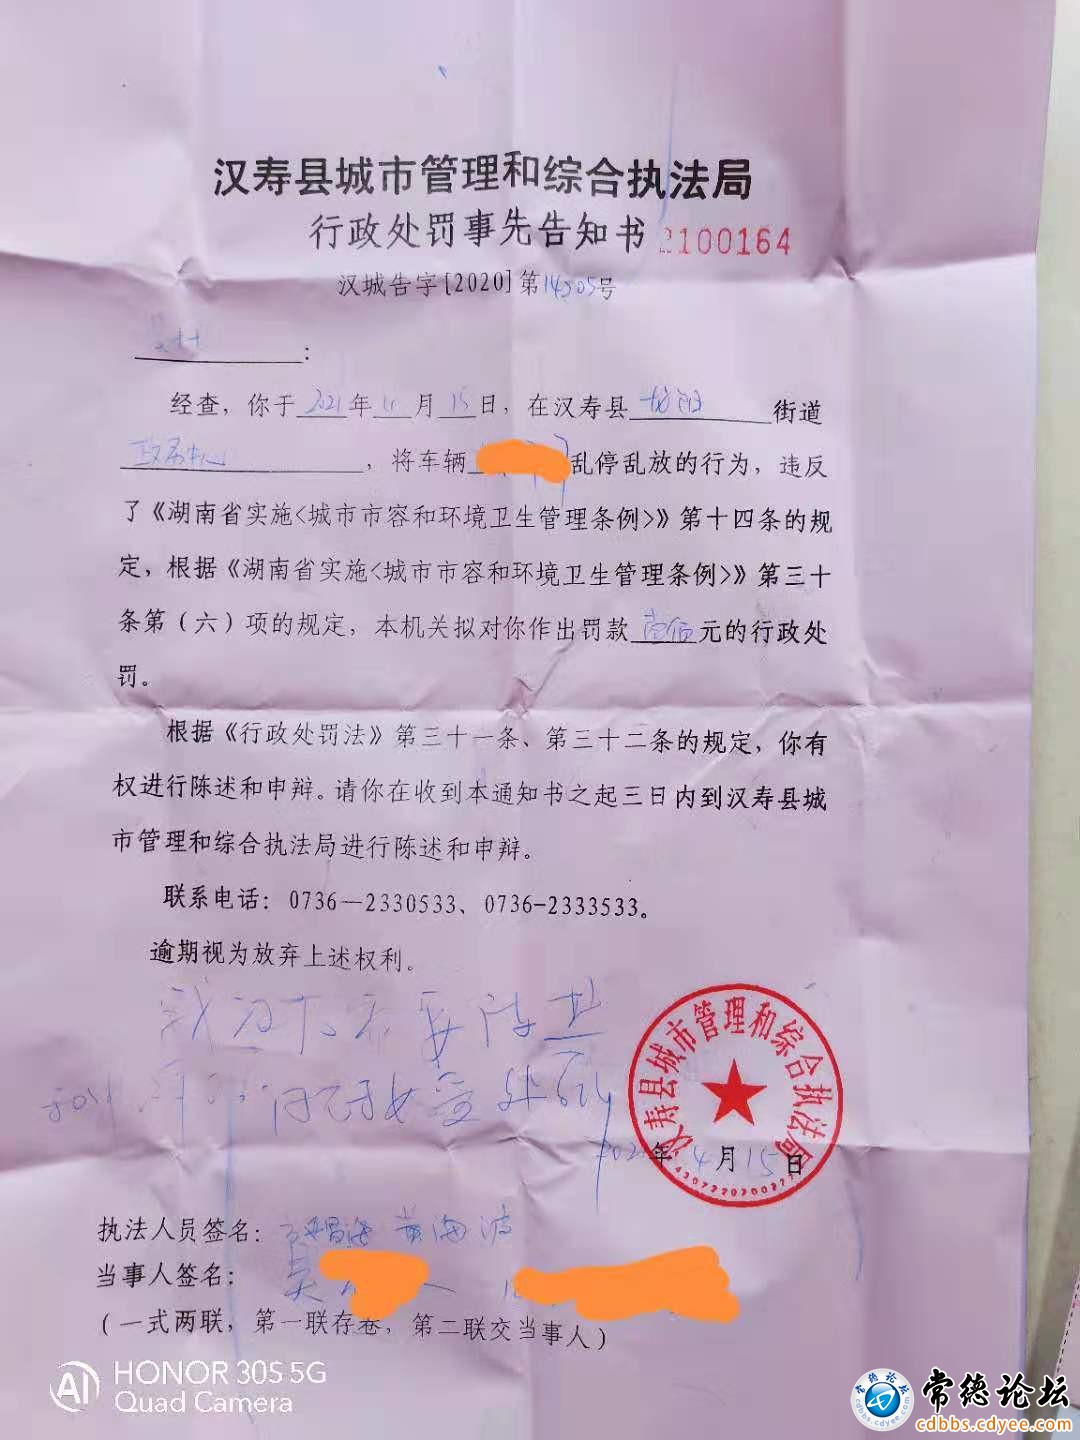 汉寿县城市管理和综合执法局
行政处罚事先告知书 2100164
汉城告字[2020]第14305号
:
经查，你于2021年4月15日，在汉寿县 街道
，将车辆 乱停乱放的行为，违反
了《湖南省实施<城市市容和环境卫生管理条例>》第十四条的规
定，根据《湖南省实施<城市市容和环境卫生管理条例>》第三十
条第（六）项的规定，本机关拟对你作出罚款壹佰元的行政处
罚。
根据《行政处罚法》第三十一条、第三十二条的规定，你有
权进行陈述和申辩。请你在收到本通知书之起三日内到汉寿县城
市管理和综合执法局进行陈述和申辩。
联系电话：0736—2330533、0736-2333533。
逾期视为放弃上述权利。
我 不需要陈述
接受处罚
汉寿县城市管理和综合执法局
2021年4月15日
执法人员签名： 黄海波
当事人签名：吴
（一式两联，第一联存卷，第二联交当事人）
HONOR 30S 5G
Quad Camera
常德论坛
cdbbs.cdyee.com